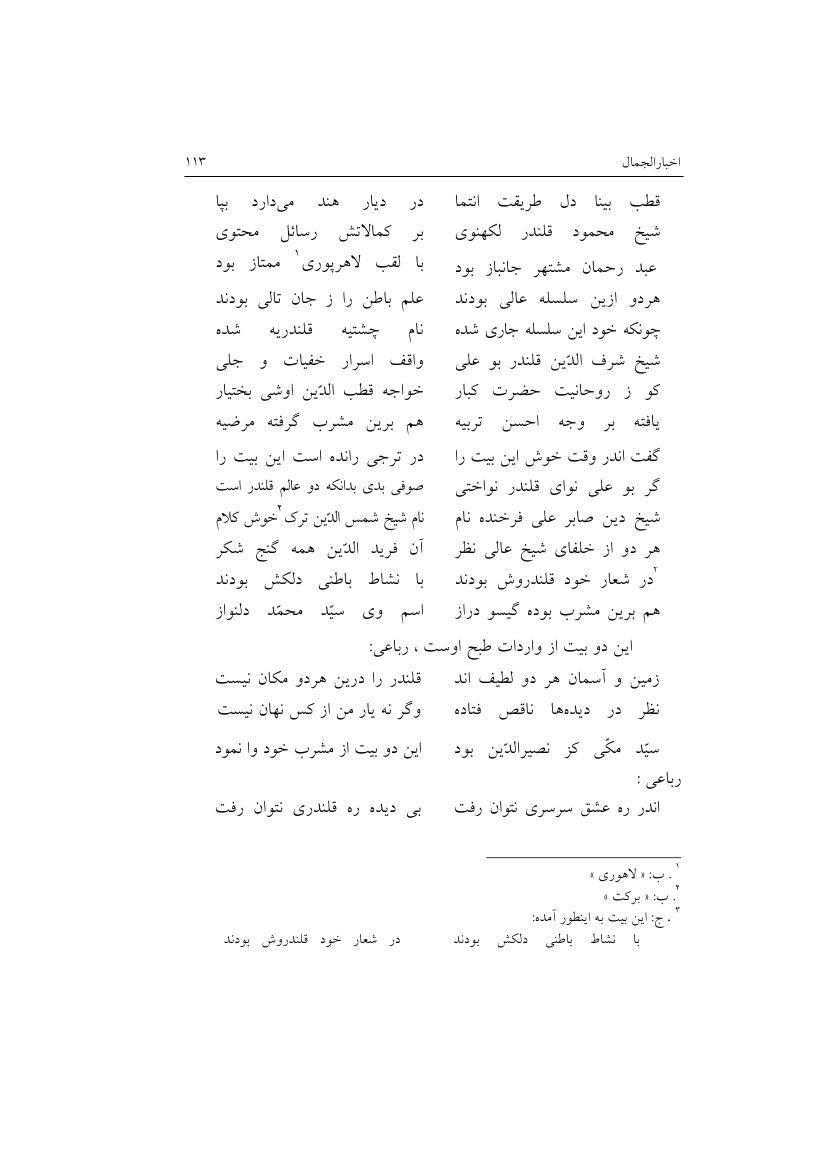 اخبارالجمال ۱۱۳
قطب بینا دل طریقت انتما در دیار هند می‌دارد بپا
شیخ محمود قلندر لکهنوی بر کمالاتش رسائل محتوی
عبد رحمان مشتهر جانباز بود با لقب لاهرپوری۱ ممتاز بود
هردو ازین سلسله عالی بودند علم باطن را ز جان تالی بودند
چونکه خود این سلسله جاری شده نام چشتیه قلندریه شده
شیخ شرف الدّین قلندر بو علی واقف اسرار خفیات و جلی
کو ز روحانیت حضرت کبار خواجه قطب الدّین اوشی بختیار
یافته بر وجه احسن تربیه هم برین مشرب گرفته مرضیه
گفت اندر وقت خوش این بیت را در ترجی رانده است این بیت را
گر بو علی نوای قلندر نواختی صوفی بدی بدانکه دو عالم قلندر است
شیخ دین صابر علی فرخنده نام نام شیخ شمس الدّین ترک۲ خوش کلام
هر دو از خلفای شیخ عالی نظر آن فرید الدّین همه گنج شکر
۲در شعار خود قلندروش بودند با نشاط باطنی دلکش بودند
هم برین مشرب بوده گیسو دراز اسم وی سیّد محمّد دلنواز
این دو بیت از واردات طبح اوست ، رباعی:
زمین و آسمان هر دو لطیف اند قلندر را درین هردو مکان نیست
نظر در دیده‌ها ناقص فتاده وگر نه یار من از کس نهان نیست
سیّد مکّی کز نصیرالدّین بود این دو بیت از مشرب خود وا نمود
رباعی :
اندر ره عشق سرسری نتوان رفت بی دیده ره قلندری نتوان رفت
۱. ب: « لاهوری »
۲. ب: « برکت »
۳. ج: این بیت به اینطور آمده:
با نشاط باطنی دلکش بودند در شعار خود قلندروش بودند